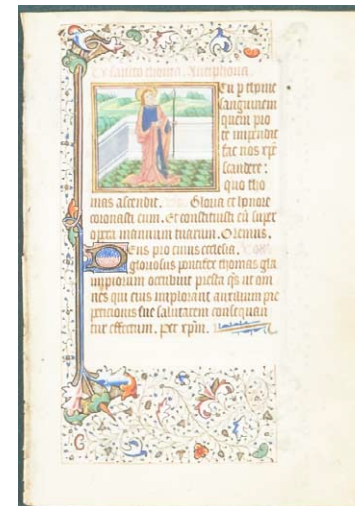 De sancto thoma. Antiphona.
Tu p thome
sanguinem
quem pro
te impendit
fac nos xpe
scandere :
quo tho
mas ascendit. Gloria et honore
coronasti eum. Et constituisti eu super
opera manuum tuarum. Oremus.
Deus pro cuius ecclesia.
gloriosus pontifex thomas gla
impiorum occubuit presta qs ut om
nes qui eius implorant auxilium pie
peticionis sue salutarem consequan
tur effectum. per xpm.